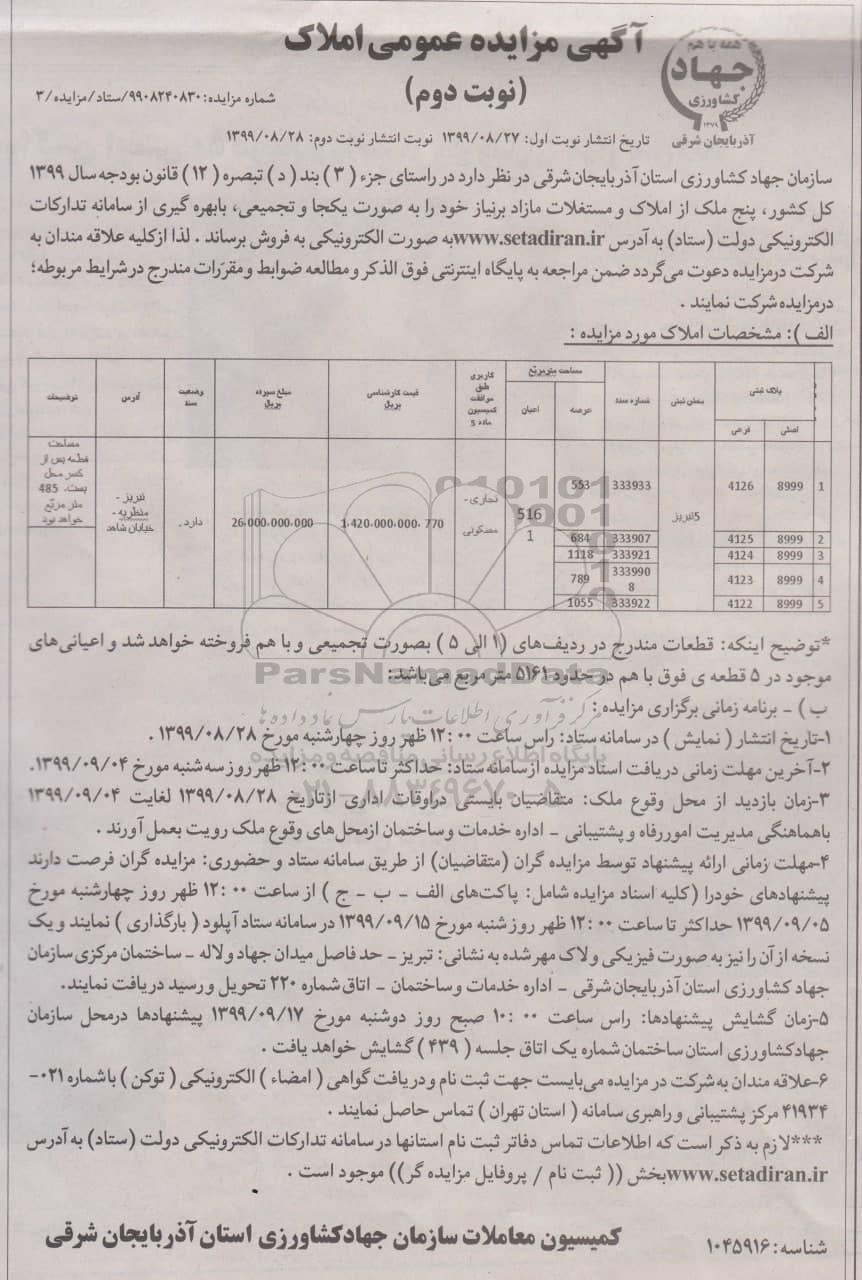 آگهی مزایده عمومی املاک
(نوبت دوم)
شماره مزایده: ۹۹۰۸۲۴۰۸۳۰/ستاد/مزایده/۳
همه با هم
جهاد
کشاورزی
آذربایجان شرقی
تاریخ انتشار نوبت اول: ۱۳۹۹/۰۸/۲۷ نوبت انتشار نوبت دوم: ۱۳۹۹/۰۸/۲۸
سازمان جهاد کشاورزی استان آذربایجان‌شرقی در نظر دارد در راستای جزء ( ۳ ) بند ( د ) تبصره ( ۱۲ ) قانون بودجه سال ۱۳۹۹
کل کشور، پنج ملک از املاک و مستغلات مازاد برنیاز خود را به صورت یکجا و تجمیعی، بابهره گیری از سامانه تدارکات
الکترونیکی دولت (ستاد) به آدرس www.setadiran.ir به صورت الکترونیکی به فروش برساند . لذا ازکلیه علاقه مندان به
شرکت درمزایده دعوت می‌گردد ضمن مراجعه به پایگاه اینترنتی فوق الذکر و مطالعه ضوابط و مقررات مندرج در شرایط مربوطه؛
درمزایده شرکت نمایند .
الف ): مشخصات املاک مورد مزایده :
پلاک ثبتی
بخش ثبتی
شماره سند
مساحت مترمربع
کاربری طبق موافقت کمیسیون ماده 5
قیمت کارشناسی بریال
مبلغ سپرده بریال
وضعیت سند
آدرس
توضیحات
اصلی فرعی عرصه اعیان
1 8999 4126 5تبریز 333933 553 5161 تجاری - مسکونی 1،420،000،000، 770 26،000،000،000 دارد. تبریز - منظریه - خیابان شاهد مساحت قطعه پس از کسر محل پست، 485 متر مربع خواهد بود
2 8999 4125 333907 684
3 8999 4124 333921 1118
4 8999 4123 3339908 789
5 8999 4122 333922 1055
*توضیح اینکه: قطعات مندرج در ردیف‌های (۱ الی ۵ ) بصورت تجمیعی و با هم فروخته خواهد شد و اعیانی‌های
موجود در ۵ قطعه ی فوق با هم در حدود ۵۱۶۱ متر مربع می‌باشد:
ب ) – برنامه زمانی برگزاری مزایده :
۱-تاریخ انتشار ( نمایش ) در سامانه ستاد: راس ساعت ۰۰ :۱۲ ظهر روز چهارشنبه مورخ ۱۳۹۹/۰۸/۲۸ .
۲-آخرین مهلت زمانی دریافت اسناد مزایده ازسامانه ستاد: حداکثر تا ساعت ۰۰ :۱۲ ظهر روز سه شنبه مورخ ۱۳۹۹/۰۹/۰۴.
۳-زمان بازدید از محل وقوع ملک: متقاضیان بایستی دراوقات اداری ازتاریخ ۱۳۹۹/۰۸/۲۸ لغایت ۱۳۹۹/۰۹/۰۴
باهماهنگی مدیریت اموررفاه و پشتیبانی – اداره خدمات وساختمان ازمحل‌های وقوع ملک رویت بعمل آورند .
۴-مهلت زمانی ارائه پیشنهاد توسط مزایده گران (متقاضیان) از طریق سامانه ستاد و حضوری: مزایده گران فرصت دارند
پیشنهادهای خودرا (کلیه اسناد مزایده شامل: پاکت‌های الف – ب – ج ) از ساعت ۰۰ :۱۲ ظهر روز چهارشنبه مورخ
۱۳۹۹/۰۹/۰۵ حداکثر تا ساعت ۰۰ :۱۲ ظهر روز شنبه مورخ ۱۳۹۹/۰۹/۱۵ در سامانه ستاد آپلود ( بارگذاری ) نمایند و یک
نسخه از آن را نیز به صورت فیزیکی و لاک مهر شده به نشانی: تبریز – حد فاصل میدان جهاد و لاله – ساختمان مرکزی سازمان
جهاد کشاورزی استان آذربایجان شرقی – اداره خدمات وساختمان – اتاق شماره ۲۲۰ تحویل و رسید دریافت نمایند.
۵-زمان گشایش پیشنهادها: راس ساعت ۰۰ :۱۰ صبح روز دوشنبه مورخ ۱۳۹۹/۰۹/۱۷ پیشنهادها درمحل سازمان
جهادکشاورزی استان ساختمان شماره یک اتاق جلسه ( ۴۳۹ ) گشایش خواهد یافت .
۶-علاقه مندان به شرکت در مزایده می‌بایست جهت ثبت نام و دریافت گواهی ( امضاء ) الکترونیکی ( توکن ) باشماره ۰۲۱-
۴۱۹۳۴ مرکز پشتیبانی و راهبری سامانه ( استان تهران ) تماس حاصل نمایند .
***لازم به ذکر است که اطلاعات تماس دفاتر ثبت نام استانها در سامانه تدارکات الکترونیکی دولت (ستاد) به آدرس
www.setadiran.ir بخش (( ثبت نام / پروفایل مزایده گر)) موجود است .
کمیسیون معاملات سازمان جهادکشاورزی استان آذربایجان شرقی
شناسه: ۱۰۴۵۹۱۶
ParsNamadData
مرکز فرآوری اطلاعات پارس نماد داده ها
پایگاه اطلاع رسانی مناقصه و مزایده
۰۲۱-۸۸۳۴۹۶۷۰-۵